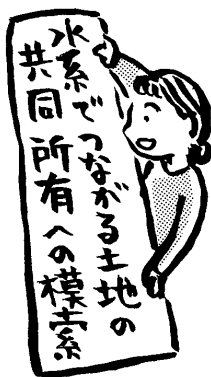 水系でつながる土地の
共同所有への模索